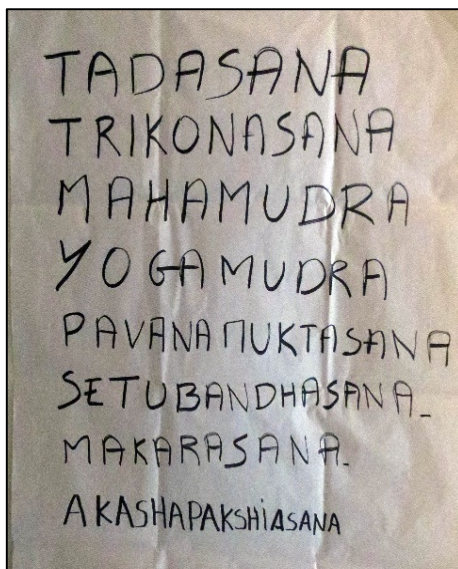 TADASANA
TRIKONASANA
MAHAMUDRA
YOGAMUDRA
PAVANAMUKTASANA
SETUBANDHASANA_
MAKARASANA_
AKASHAPAKSHiASANA